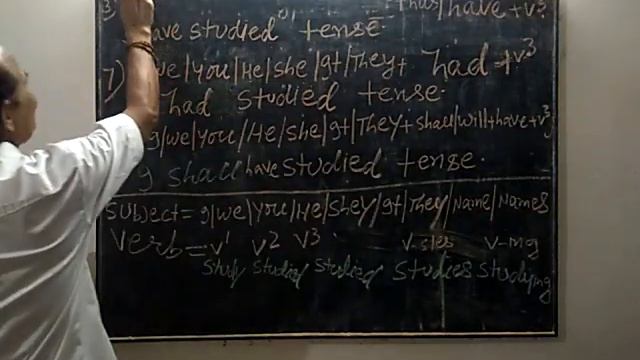 3) thus/have + v3
have studied tense.
7) we/you/He/she/gt/They+ had + v3
had studied tense.
g/we/you/He/she/gt/They + shall/will + have + v3
g shall have studied tense.
Subject = g/we/you/He/Shey/gt/They/Name/Names
Verb = v1 v2 v3 v-s/es v-ing
Study Studied Studied Studies Studying